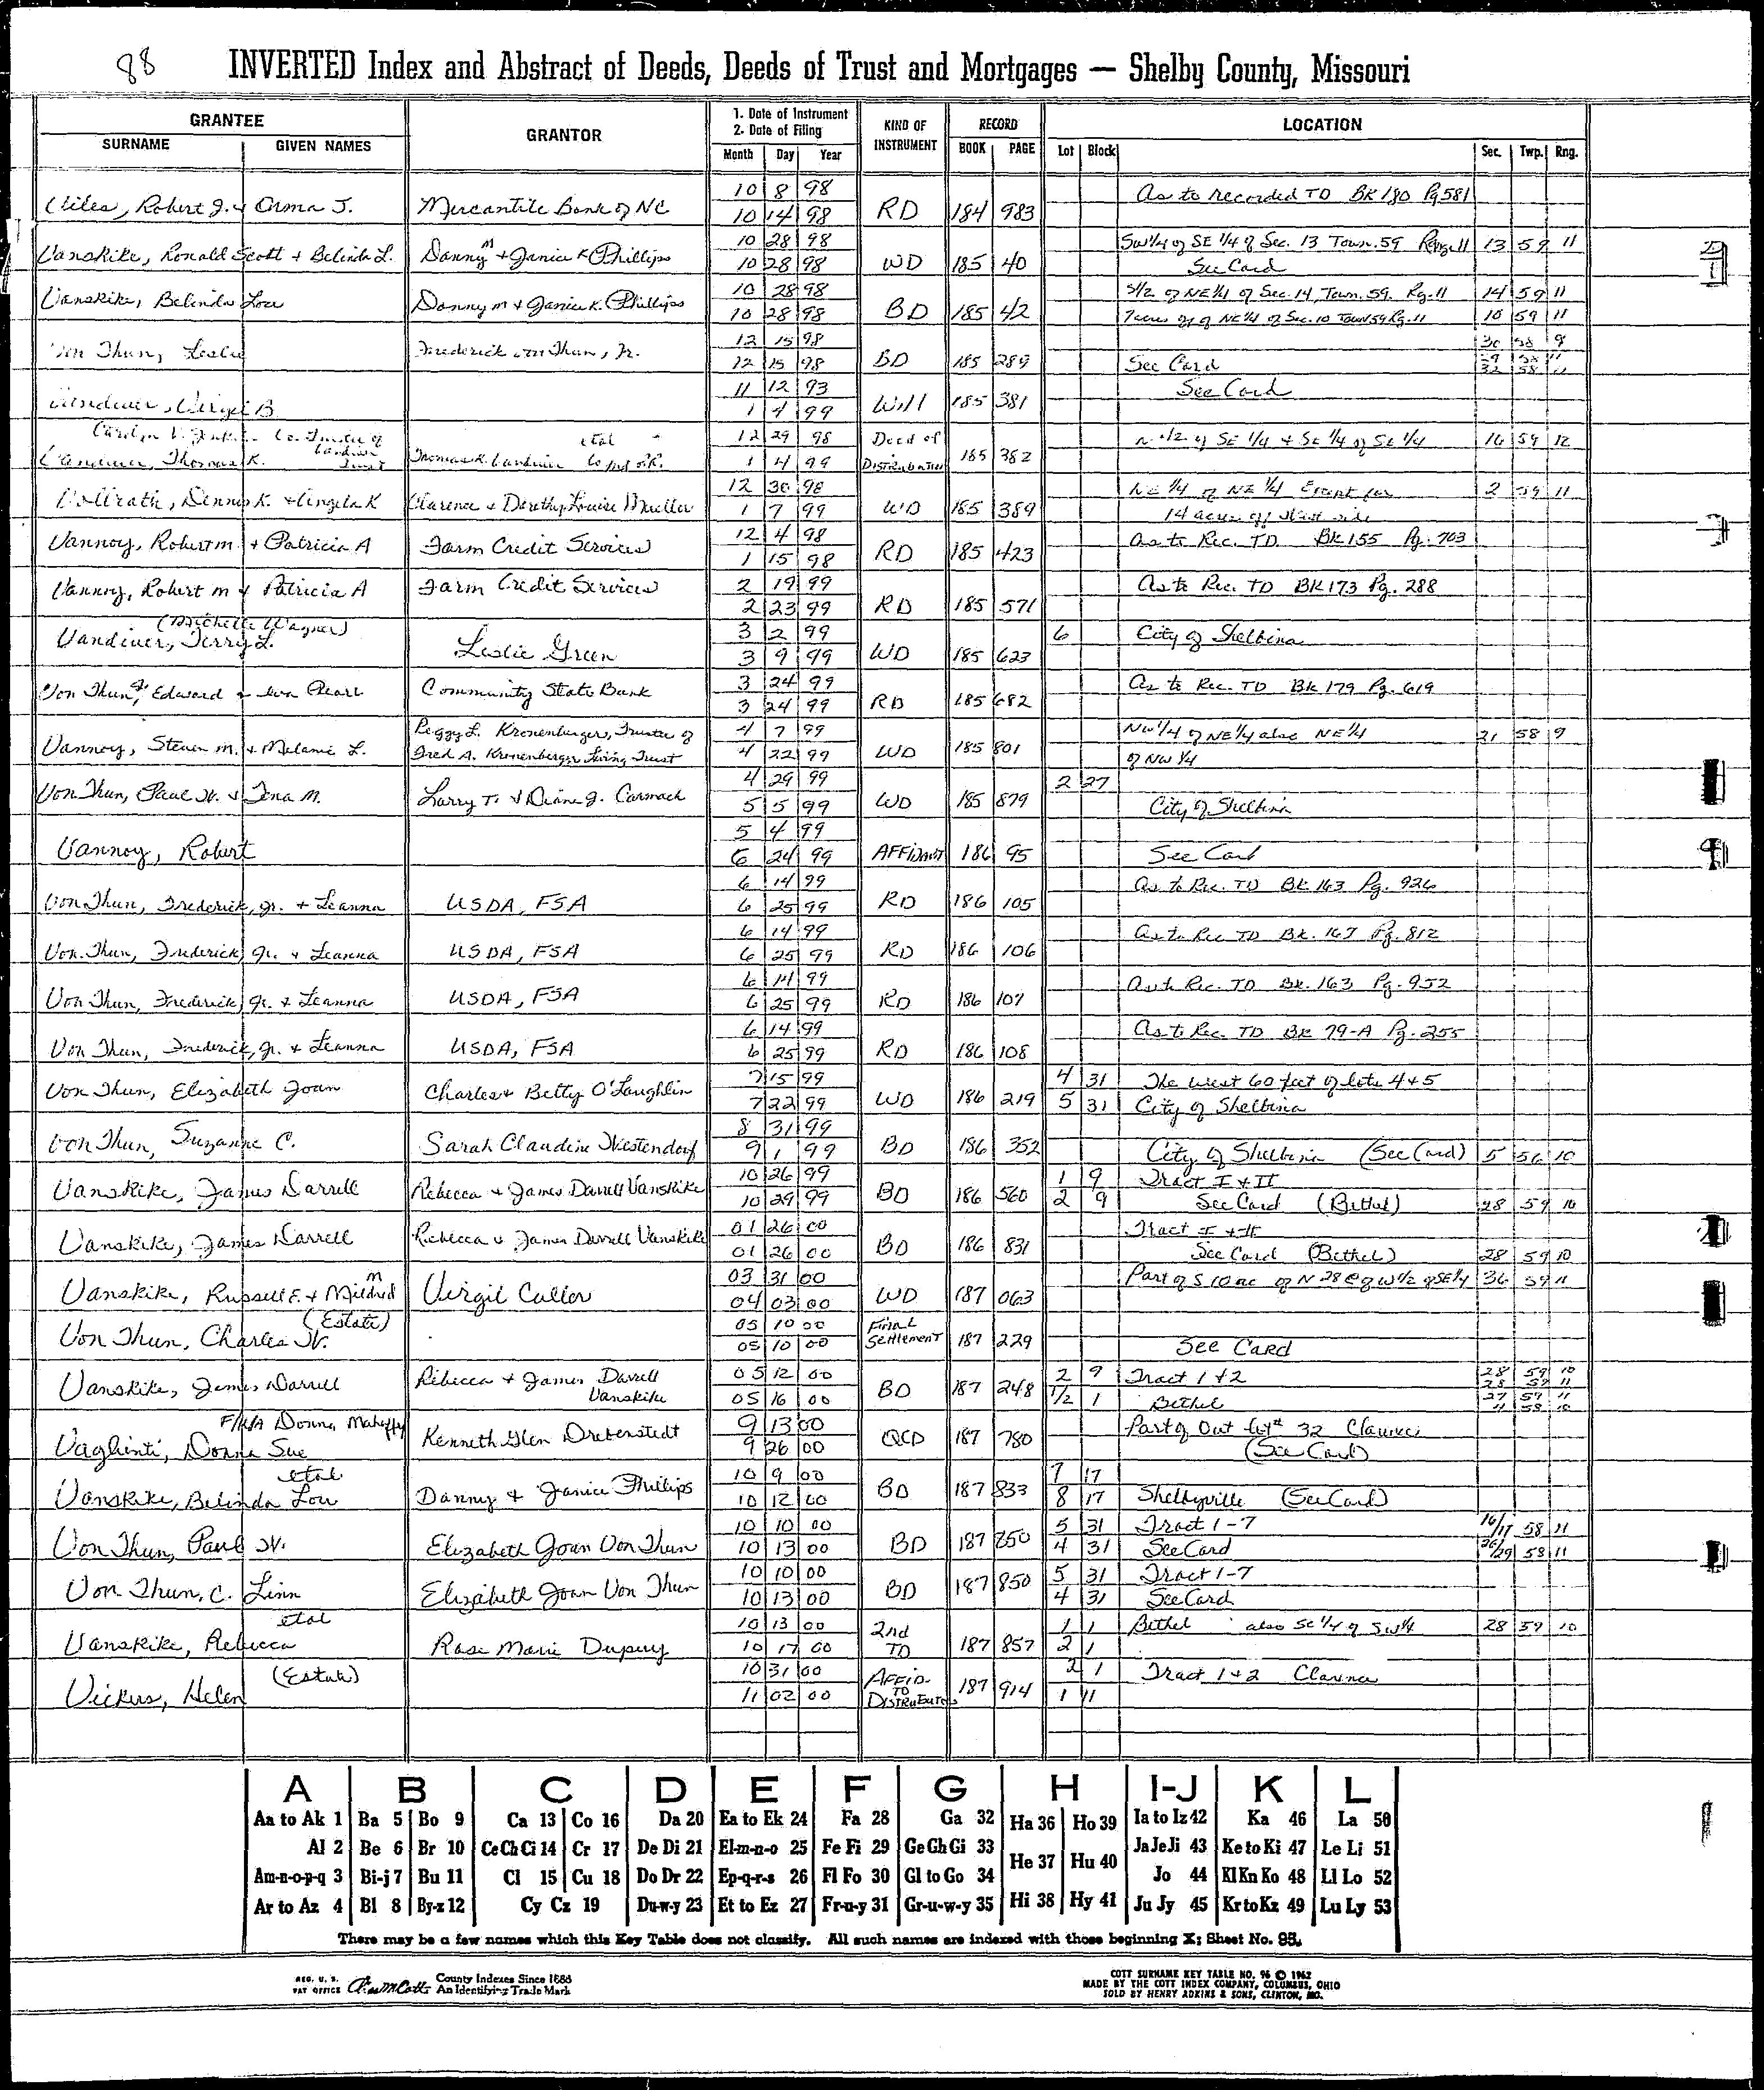 88
INVERTED Index and Abstract of Deeds, Deeds of Trust and Mortgages — Shelby County, Missouri
GRANTEE
SURNAME GIVEN NAMES
GRANTOR
1. Date of Instrument
2. Date of Filing
Month Day Year
KIND OF INSTRUMENT
RECORD
BOOK PAGE
LOCATION
Lot Block
Sec. Twp. Rng.
Viles, Robert J. & Orma J. Mercantile Bank of NC 10 8 98 RD 184 983 As to recorded TD BK 180 Pg 581
10 14 98
Vanskike, Ronald Scott + Belinda L. Danny M + Janice K Phillips 10 28 98 WD 185 40 SW 1/4 of SE 1/4 of Sec. 13 Town. 59 Range 11 13 59 11
10 28 98 See Card
Vanskike, Belinda Lou Danny M + Janice K. Phillips 10 28 98 BD 185 42 S 1/2 of NE 1/4 of Sec. 14, Town. 59. Rg. 11 14 59 11
10 28 98 7 acres of NE 1/4 of Sec. 10 Town 59 Rg. 11 10 59 11
Von Thun, Leslie Frederick von Thun, Jr. 12 15 98 BD 185 289 30 58 9
12 15 98 See Card
Vandiver, Virgil B. 11 12 93 Will 185 381 See Card
1 4 99
Vandiver, Thomas K. Thomas K. Vandiver etal 12 29 98 Deed of Distribution 185 382 N 1/2 of SE 1/4 + SE 1/4 of SE 1/4 16 59 12
1 4 99
Vollrath, Dennis K. + Angela K Clarence + Dorothy Louise Mueller 12 30 98 WD 185 389 NE 1/4 of NE 1/4 Except for 2 59 11
1 7 99 14 acres off West side
Vannoy, Robert M. + Patricia A Farm Credit Services 12 4 98 RD 185 423 As to Rec. TD BK 155 Pg. 703
1 15 98
Vannoy, Robert M + Patricia A Farm Credit Services 2 19 99 RD 185 571 As to Rec. TD BK 173 Pg. 288
2 23 99
(Michelle Wagner)
Vandiver, Terry L. Leslie Green 3 2 99 WD 185 623 6 City of Shelbina
3 9 99
Von Thun, Jr. Edward + Iva Pearl Community State Bank 3 24 99 RD 185 682 As to Rec. TD Bk 179 Pg. 619
3 24 99
Vannoy, Steven M. + Melanie L. Peggy L. Kronenberger, Trustee of 4 7 99 WD 185 801 NW 1/4 of NE 1/4 also NE 1/4 21 58 9
Fred A. Kronenberger Living Trust 4 22 99 of NW 1/4
Von Thun, Paul W. + Tena M. Larry T. + Diane J. Carmack 4 29 99 WD 185 879 2 27
5 5 99 City of Shelbina
Vannoy, Robert 5 4 99 AFFIDAVIT 186 95
6 24 99 See Card
Von Thun, Frederick, Jr. + Leanna USDA, FSA 6 14 99 RD 186 105 As to Rec. TD Bk 163 Pg. 926
6 25 99
Von Thun, Frederick, Jr. + Leanna USDA, FSA 6 14 99 RD 186 106 As to Rec TD Bk. 167 Pg. 812
6 25 99
Von Thun, Frederick, Jr. + Leanna USDA, FSA 6 14 99 RD 186 107 As to Rec. TD Bk. 163 Pg. 952
6 25 99
Von Thun, Frederick, Jr. + Leanna USDA, FSA 6 14 99 RD 186 108 As to Rec. TD Bk 79-A Pg. 255
6 25 99
Von Thun, Elizabeth Joan Charles + Betty O'Laughlin 7 15 99 WD 186 219 4 31 The west 60 feet of lots 4 + 5
7 22 99 5 31 City of Shelbina
Von Thun, Suzanne C. Sarah Claudine Westendorf 8 31 99 BD 186 352
9 1 99 City of Shelbina (See Card) 5 56 10
Vanskike, James Darrell Rebecca + James Darrell Vanskike 10 26 99 BD 186 560 1 9 Tract I + II
10 29 99 2 9 See Card (Bethel) 28 59 10
Vanskike, James Darrell Rebecca + James Darrell Vanskike 01 26 00 BD 186 831 Tract I + II
01 26 00 See Card (Bethel) 28 59 10
Vanskike, Russell E. + Mildred M Virgil Culler 03 31 00 WD 187 063 Part of S 10 ac of N 28 of W 1/2 of SE 1/4 36 59 11
04 03 00
(Estate)
Von Thun, Charles W. 05 10 00 Final Settlement 187 229
05 10 00 See Card
Vanskike, James Darrell Rebecca + James Darrell Vanskike 05 12 00 BD 187 248 2 9 Tract 1 + 2 28 59 10
05 16 00 1/2 1 Bethel
F/K/A Donna Mahaffy
Vaglienti, Donna Sue Kenneth Glen Drebenstedt 9 13 00 QCD 187 780 Part of Out Lot 32 Clarence
9 26 00 (See Card)
etal
Vanskike, Belinda Lou Danny + Janice Phillips 10 9 00 BD 187 833 7 17
10 12 00 8 17 Shelbyville (See Card)
Von Thun, Paul W. Elizabeth Joan Von Thun 10 10 00 BD 187 850 5 31 Tract 1-7 16/17 58 11
10 13 00 4 31 See Card 58 11
Von Thun, C. Linn Elizabeth Joan Von Thun 10 10 00 BD 187 850 5 31 Tract 1-7
10 13 00 4 31 See Card
etal
Vanskike, Rebecca Rose Marie Dupuy 10 13 00 2nd TD 187 857 1 1 Bethel also SE 1/4 of SW 1/4 28 59 10
10 17 00 2 1
(Estate)
Vickers, Helen 10 31 00 AFFID. TO DISTRIBUTEES 187 914 2 1 Tract 1 + 2 Clarence
11 02 00 1 11
A B C D E F G H I-J K L
Aa to Ak 1 Ba 5 Bo 9 Ca 13 Co 16 Da 20 Ea to Ek 24 Fa 28 Ga 32 Ha 36 Ho 39 Ia to Iz 42 Ka 46 La 50
Al 2 Be 6 Br 10 Ce Ch Ci 14 Cr 17 De Di 21 El-m-n-o 25 Fe Fi 29 Ge Gh Gi 33 He 37 Hu 40 Ja Je Ji 43 Ke to Ki 47 Le Li 51
Am-n-o-p-q 3 Bi-j 7 Bu 11 Cl 15 Cu 18 Do Dr 22 Ep-q-r-s 26 Fl Fo 30 Gl to Go 34 Jo 44 Kl Kn Ko 48 Ll Lo 52
Ar to Az 4 Bl 8 By-z 12 Cy Cz 19 Du-w-y 23 Et to Ez 27 Fr-u-y 31 Gr-u-w-y 35 Hi 38 Hy 41 Ju Jy 45 Kr to Kz 49 Lu Ly 53
There may be a few names which this Key Table does not classify. All such names are indexed with those beginning X; Sheet No. 95.
REG. U. S. PAT OFFICE County Indexes Since 1888
An Identifying Trade Mark
COTT SURNAME KEY TABLE NO. 96 © 1962
MADE BY THE COTT INDEX COMPANY, COLUMBUS, OHIO
SOLD BY HENRY ADKINS & SONS, CLINTON, MO.